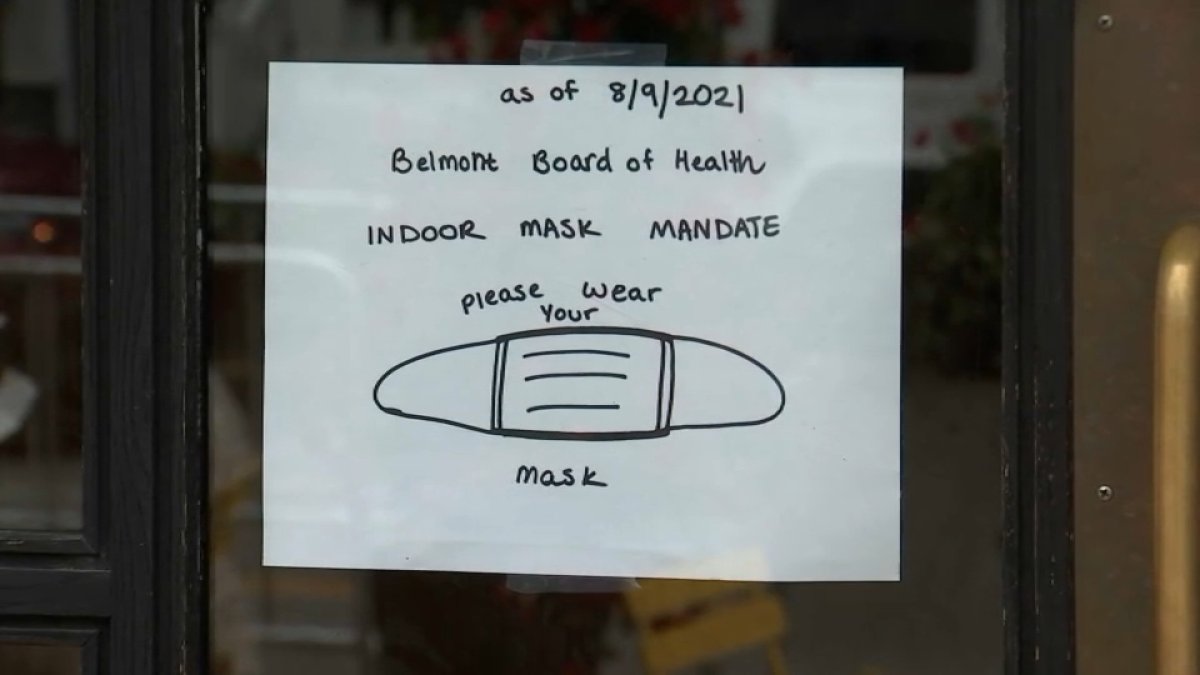 as of 8/9/2021
Belmont Board of Health
INDOOR MASK MANDATE
please wear
Your
mask